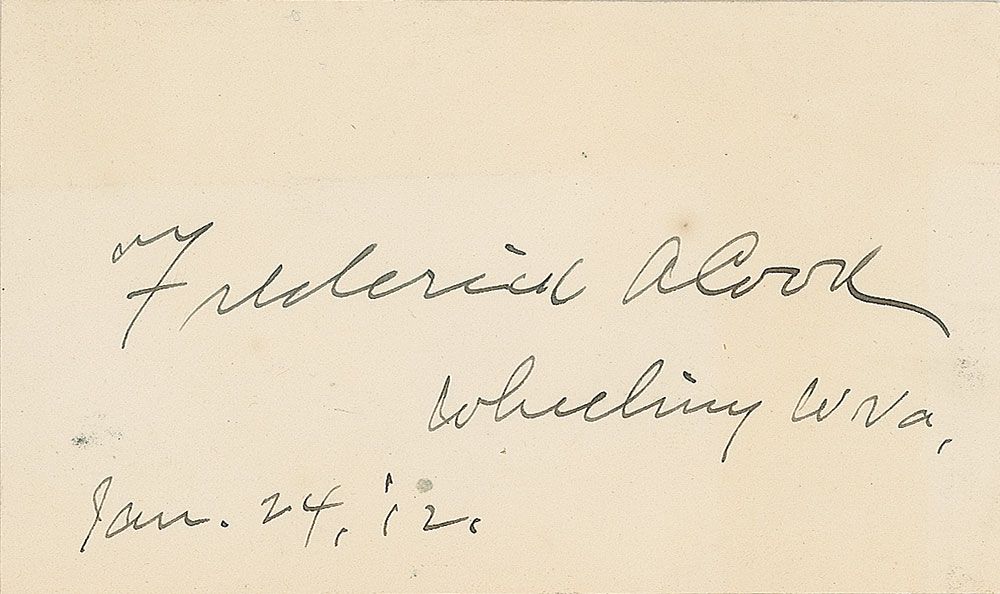 Frederick A Cook
Wheeling W Va,
Jan. 24, '12.